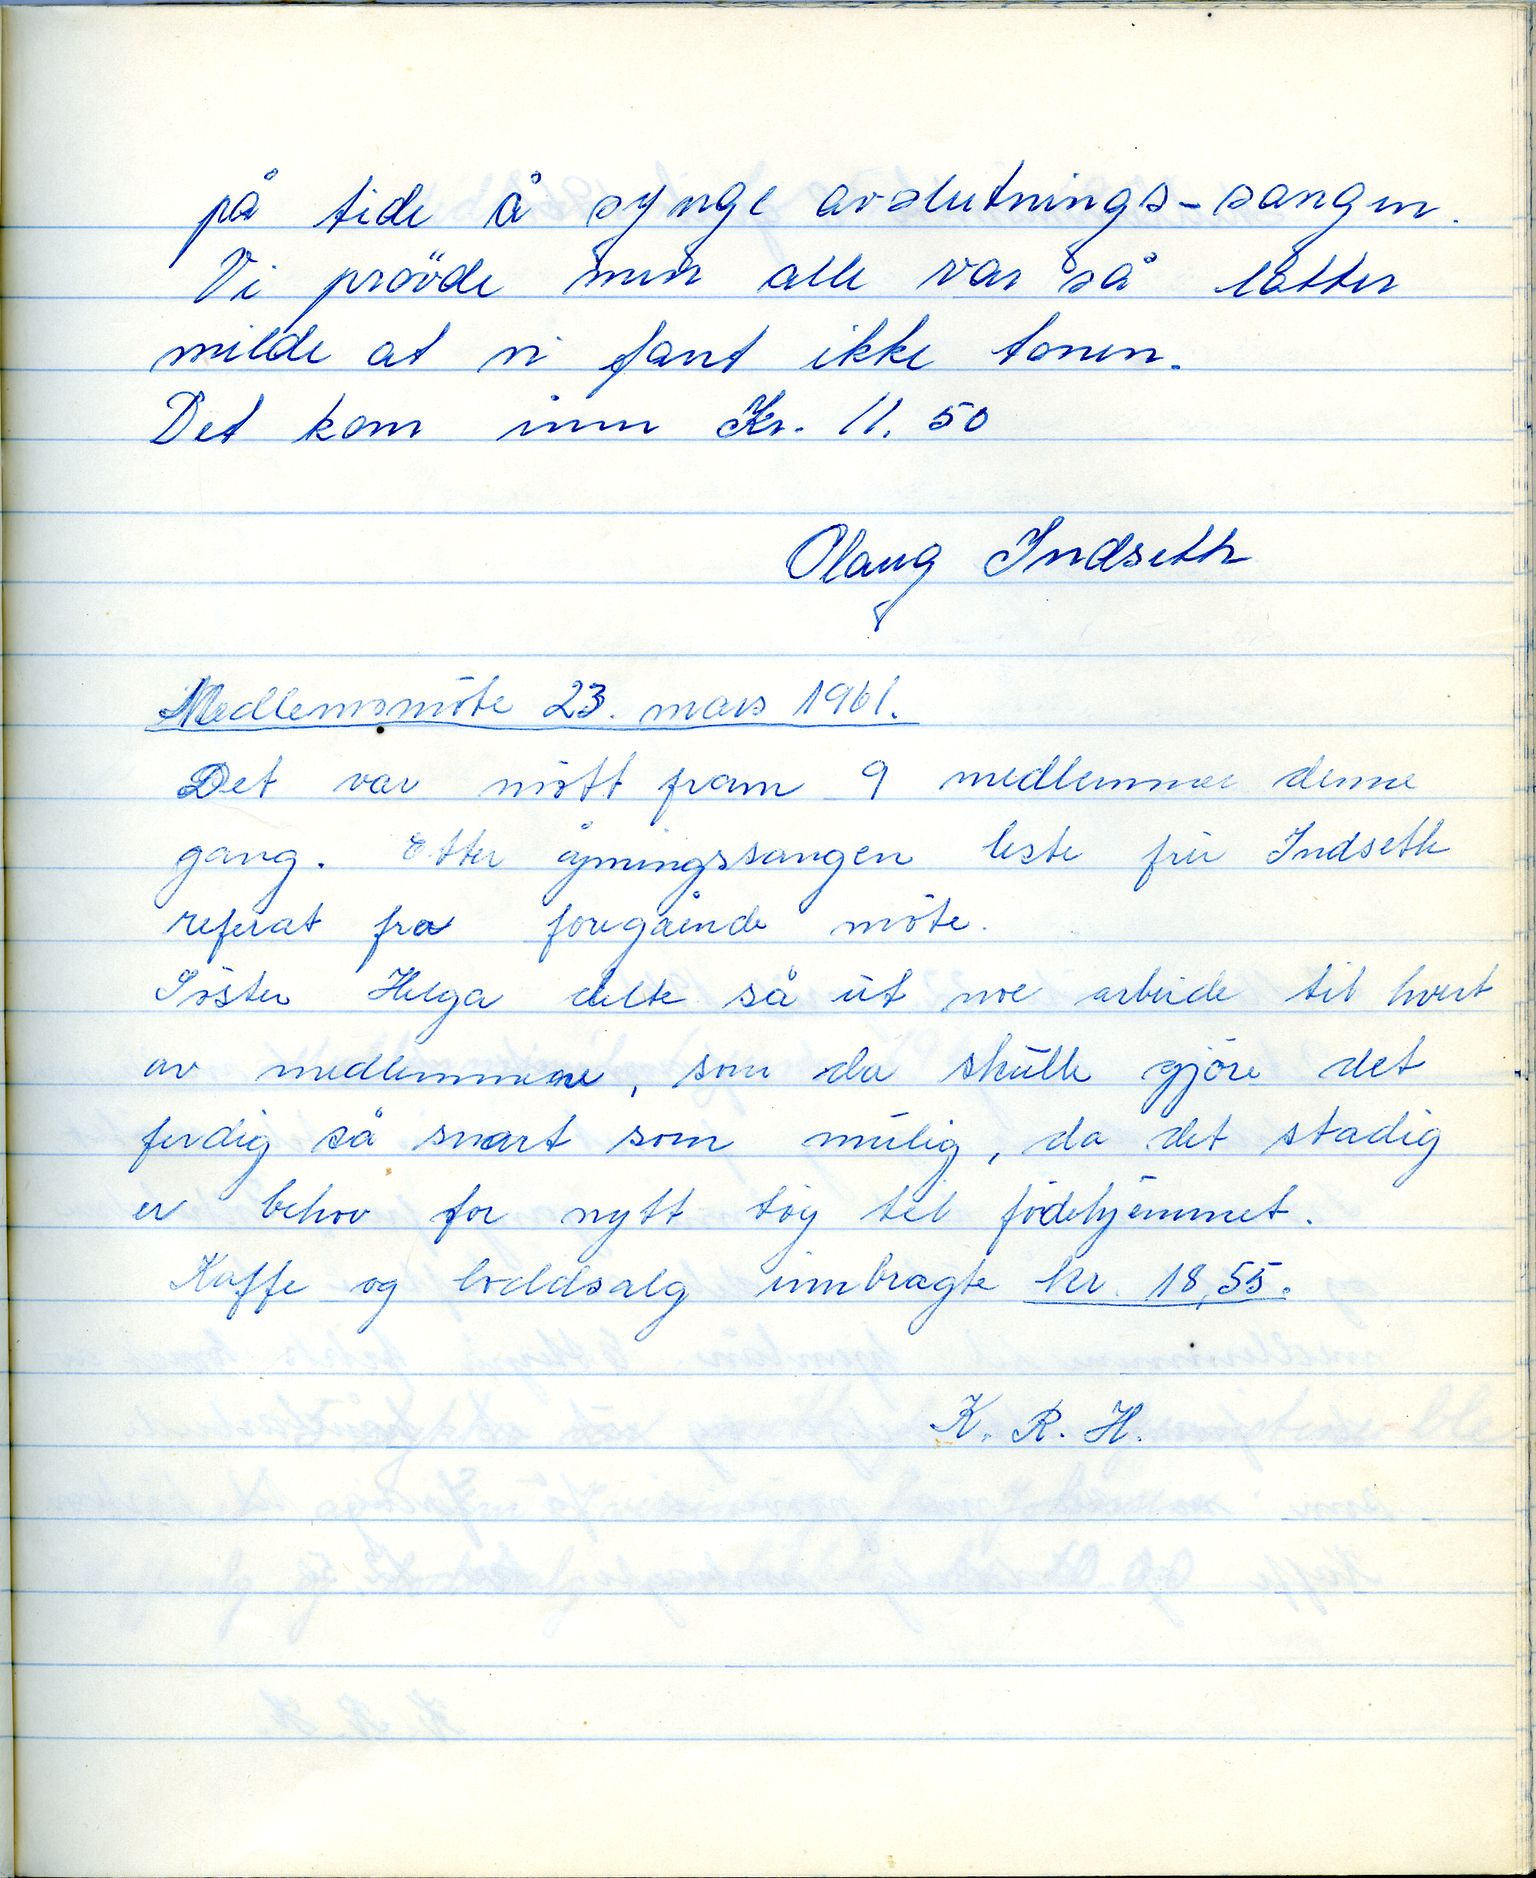 på tide å synge avslutnings-sangen.
Vi prövde men alle var så latter
milde at vi fant ikke tonen.
Det kom inn Kr. 11.50
Olaug Indseth
Medlemsmöte 23. mars 1961.
Det var mött fram 9 medlemmer denne
gang. Etter åpningssangen leste frü Indseth
referat fra foregående möte.
Söster Helga delte så ut noe arbeide til hvert
av medlemmene, som da skülle gjöre det
ferdig så snart som mülig, da det stadig
er behov for nytt töy til födehjemmet.
Kaffe og loddsalg innbragte kr. 18,55.
K. R. H.